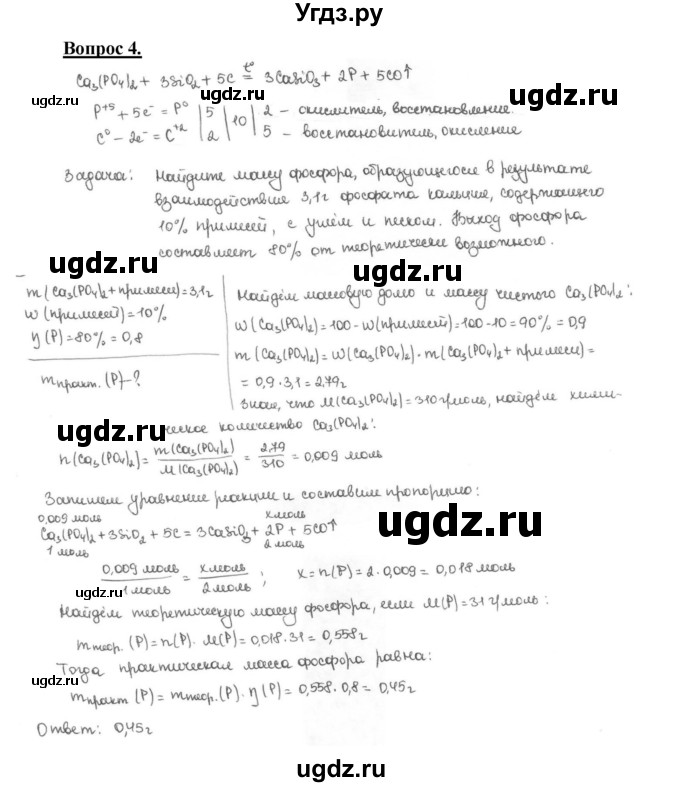 Угдз.ру
Вопрос 4.
Ca₃(PO₄)₂ + 3SiO₂ + 5C =t°= 3CaSiO₃ + 2P + 5CO↑
ugdz.ru ugdz.ru
P⁺⁵ + 5e⁻ = P⁰ | 5 | 10 | 2 – окислитель, восстановление.
C⁰ – 2e⁻ = C⁺² | 2 | 5 – восстановитель, окисление
ugdz.ru ugdz.ru
Задача: Найдите массу фосфора, образующегося в результате
взаимодействия 3,1г фосфата кальция, содержащего
10% примесей, с углём и песком. Выход фосфора
составляет 80% от теоретически возможного.
ugdz.ru ugdz.ru
m(Ca₃(PO₄)₂ + примеси) = 3,1г
w(примесей) = 10%
η(P) = 80% = 0,8
mпракт.(P) – ?
Найдём массовую долю и массу чистого Ca₃(PO₄)₂:
w(Ca₃(PO₄)₂) = 100 – w(примесей) = 100 – 10 = 90% = 0,9
ugdz.ru ugdz.ru
m(Ca₃(PO₄)₂) = w(Ca₃(PO₄)₂) · m(Ca₃(PO₄)₂ + примеси) =
= 0,9 · 3,1 = 2,79г
Зная, что M(Ca₃(PO₄)₂) = 310 г/моль, найдём хими-
ugdz.ru ugdz.ru
ческое количество Ca₃(PO₄)₂:
n(Ca₃(PO₄)₂) = m(Ca₃(PO₄)₂) / M(Ca₃(PO₄)₂) = 2,79 / 310 = 0,009 моль
Запишем уравнение реакции и составим пропорцию:
0,009 моль x моль
Ca₃(PO₄)₂ + 3SiO₂ + 5C = 3CaSiO₃ + 2P + 5CO↑
1 моль 2 моль
ugdz.ru ugdz.ru
0,009 моль / 1 моль = x моль / 2 моль ; x = n(P) = 2 · 0,009 = 0,018 моль
ugdz.ru ugdz.ru
Найдём теоретическую массу фосфора, если M(P) = 31 г/моль:
mтеор.(P) = n(P) · M(P) = 0,018 · 31 = 0,558г
Тогда практическая масса фосфора равна:
ugdz.ru ugdz.ru
mпракт(P) = mтеор.(P) · η(P) = 0,558 · 0,8 = 0,45г
Ответ: 0,45г
ugdz.ru ugdz.ru
ugdz.ru